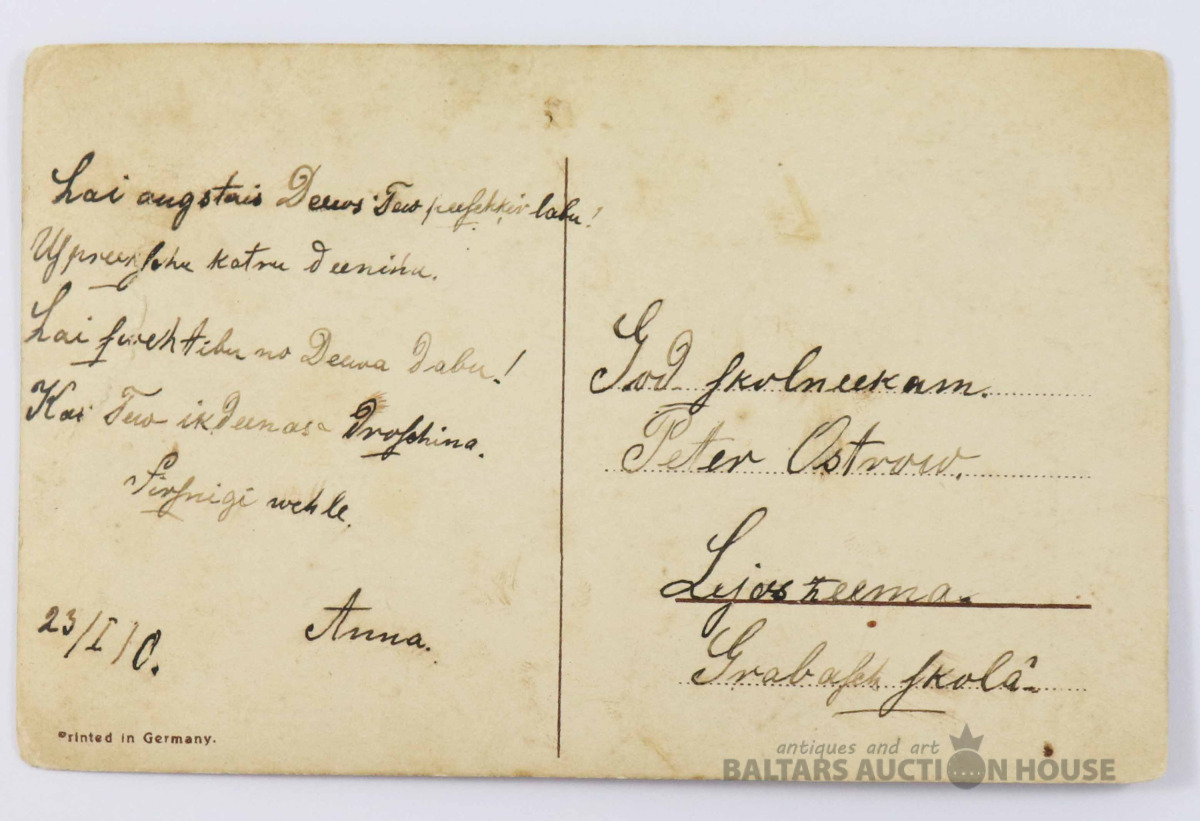 Lai augstais Deews Tew peeſchķir labu!
Uſ preekſchu katru deeninu.
Lai ſwehtibu no Deewa dabu!
Kas Tew ikdeenas droſchina.
Sirſnigi wehle
Anna.
23/I/0.
Printed in Germany.
God ſkolneekam.
Peter Ostrow.
Lejas zeema.
Grabaſch ſkolâ
antiques and art
BALTARS AUCTION HOUSE